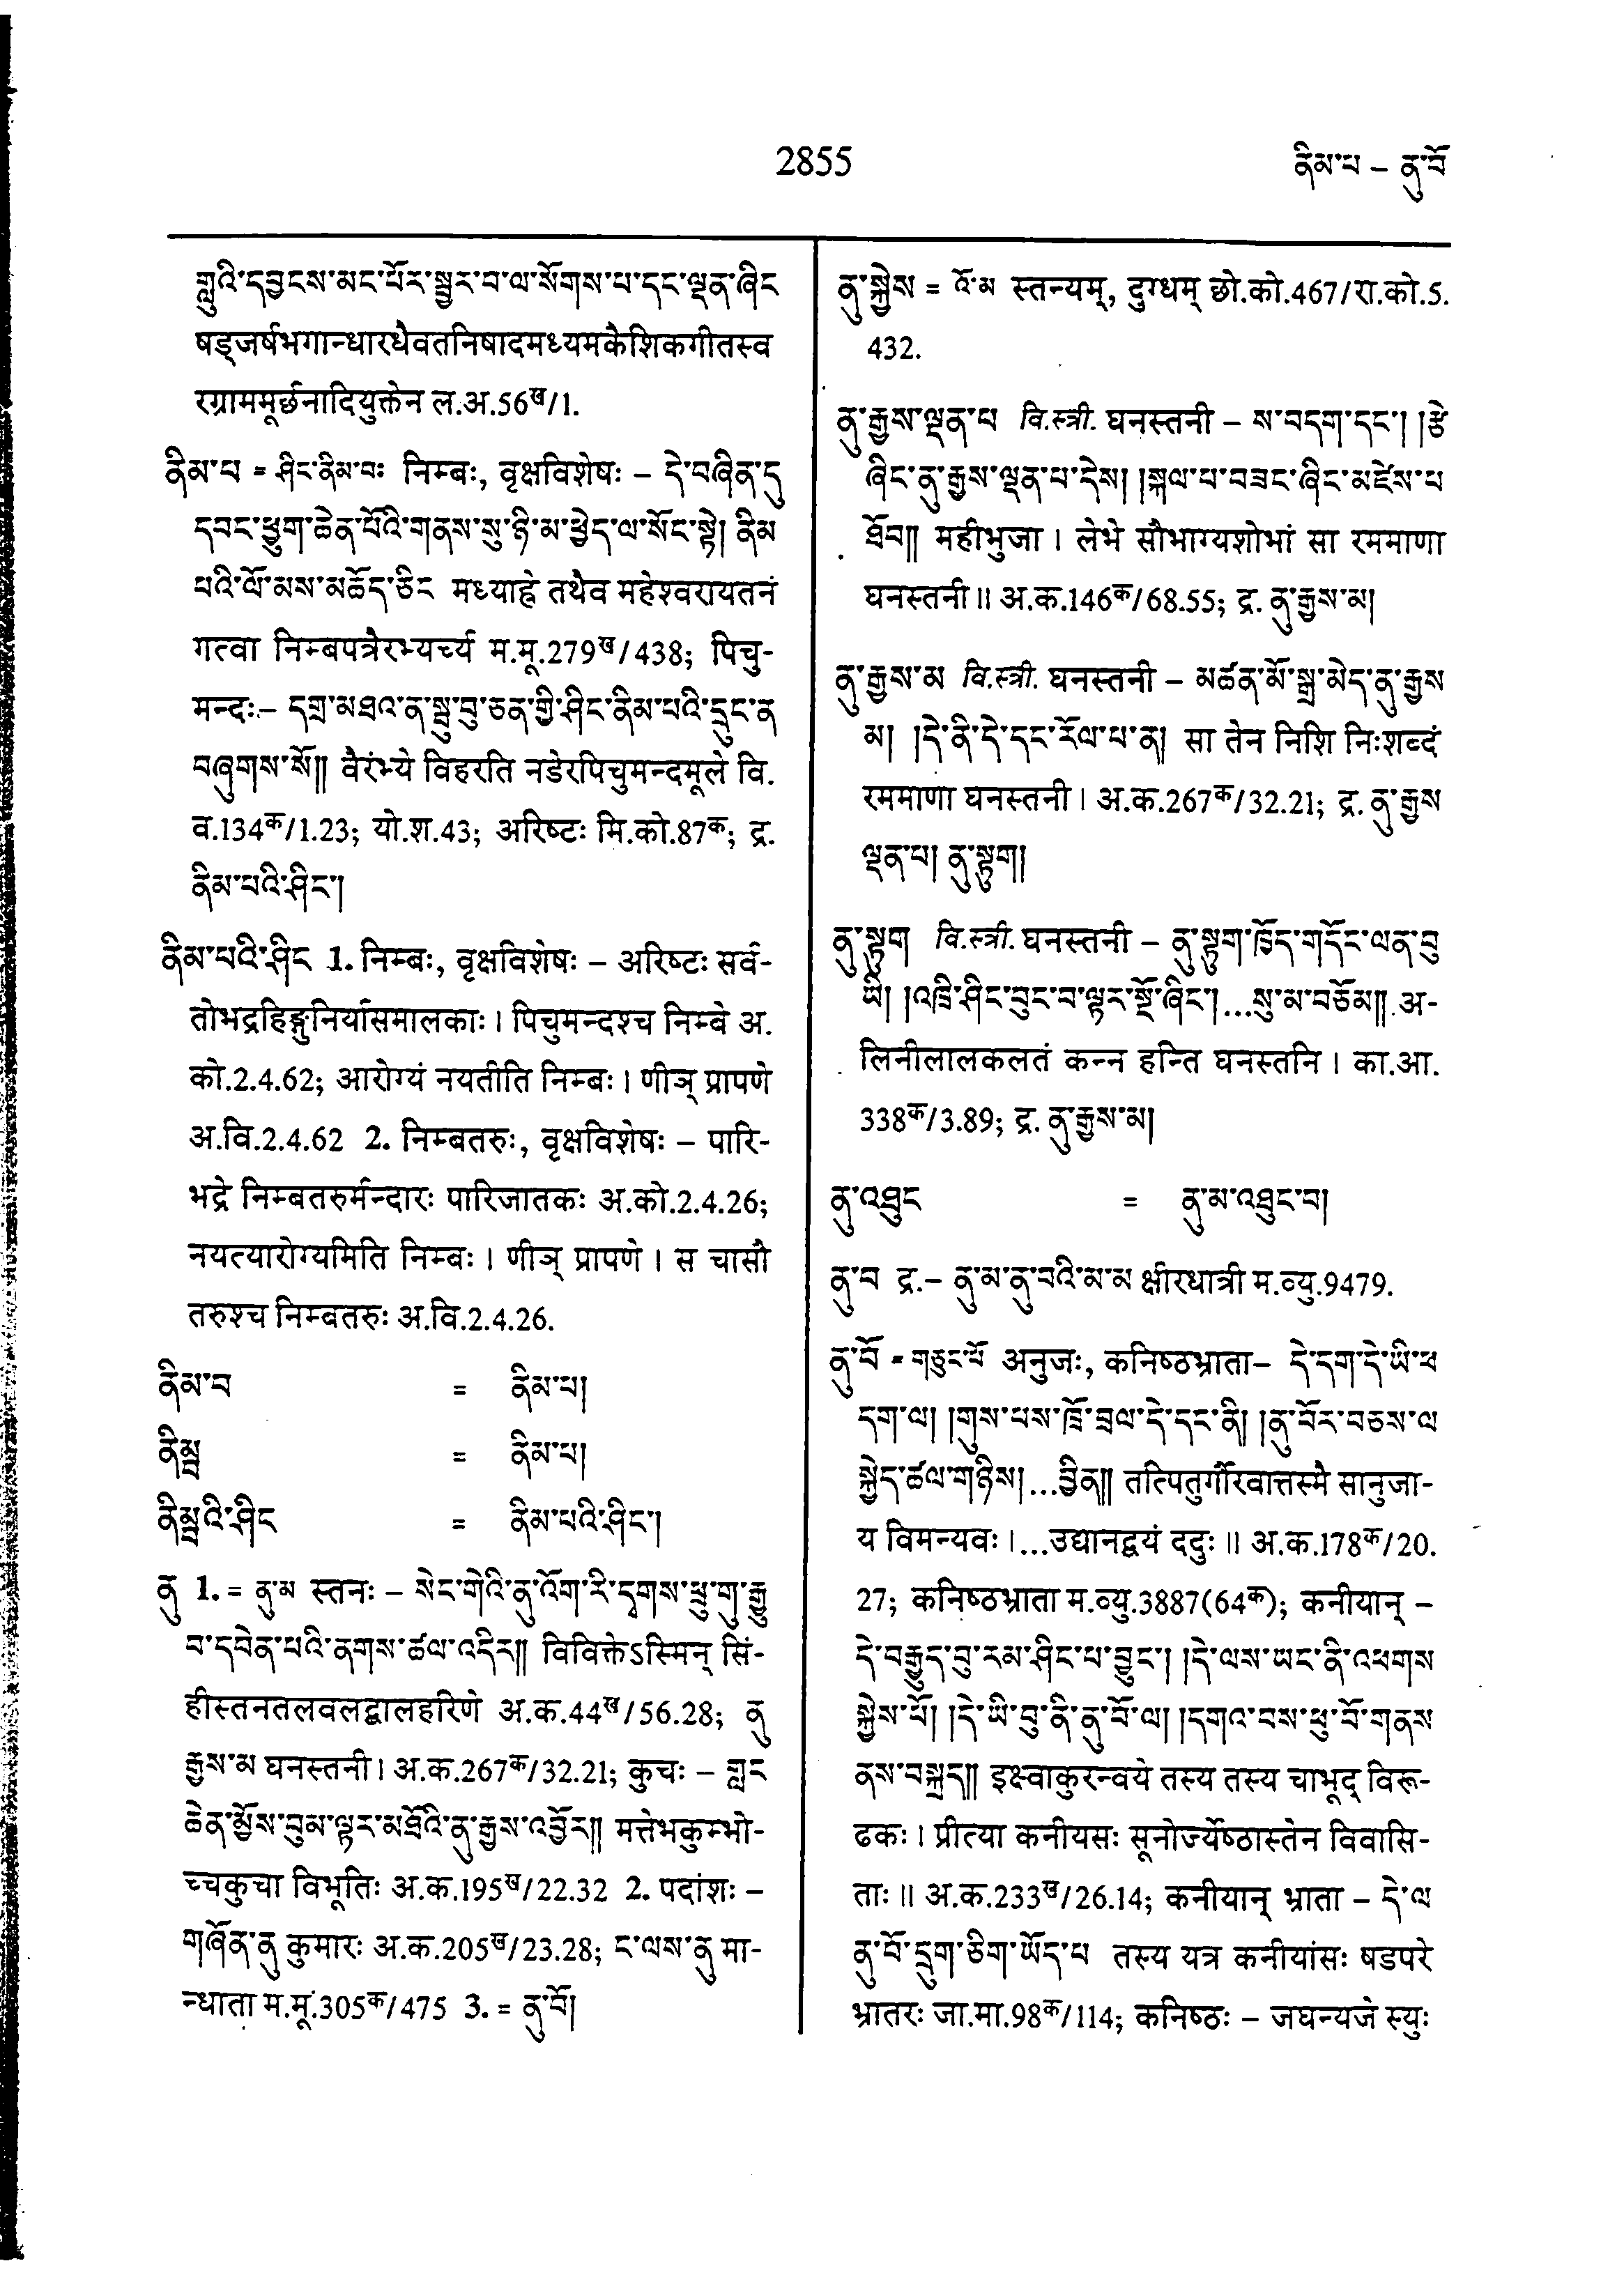 2855
ནིམ་པ – ནུ་བོ
གླུའི་དབྱངས་མང་པོར་སྦྱར་བ་ལ་སོགས་པ་དང་ལྡན་ཞིང
षड्जर्षभगान्धारधैवतनिषादमध्यमकैशिकगीतस्व
रग्राममूर्छनादियुक्तेन ल.अ.56ख/1.
ནིམ་པ = ཤིང་ནིམ་པः निम्बः, वृक्षविशेषः – དེ་བཞིན་དུ
དབང་ཕྱུག་ཆེན་པོའི་གནས་སུ་ཉི་མ་ཕྱེད་ལ་སོང་སྟེ། ནིམ
པའི་ལོ་མས་མཆོད་ཅིང मध्याह्ने तथैव महेश्वरायतनं
गत्वा निम्बपत्रैरभ्यर्च्य म.मू.279ख/438; पिचु-
मन्दः– དགྲ་མཐའ་ན་སྦུ་བུ་ཅན་གྱི་ཤིང་ནིམ་པའི་དྲུང་ན
བཞུགས་སོ།། वैरंभ्ये विहरति नडेरपिचुमन्दमूले वि.
व.134क/1.23; यो.श.43; अरिष्टः मि.को.87क; द्र.
ནིམ་པའི་ཤིང་།
ནིམ་པའི་ཤིང 1. निम्बः, वृक्षविशेषः – अरिष्टः सर्व-
तोभद्रहिङ्गुनिर्यासमालकाः। पिचुमन्दश्च निम्बे अ.
को.2.4.62; आरोग्यं नयतीति निम्बः। णीञ् प्रापणे
अ.वि.2.4.62 2. निम्बतरुः, वृक्षविशेषः – पारि-
भद्रे निम्बतरुर्मन्दारः पारिजातकः अ.को.2.4.26;
नयत्यारोग्यमिति निम्बः। णीञ् प्रापणे। स चासौ
तरुश्च निम्बतरुः अ.वि.2.4.26.
ནིམ་བ = ནིམ་པ།
ནིམྦ = ནིམ་པ།
ནིམྦའི་ཤིང = ནིམ་པའི་ཤིང་།
ནུ 1. = ནུ་མ स्तनः – སེང་གེའི་ནུ་འོག་རི་དྭགས་ཕྲུ་གུ་རྒྱུ
བ་དབེན་པའི་ནགས་ཚལ་འདིར།། विविक्तेऽस्मिन् सिं-
हीस्तनतलवलद्बालहरिणे अ.क.44ख/56.28; ནུ
རྒྱས་མ घनस्तनी। अ.क.267क/32.21; कुचः – གླང
ཆེན་མྱོས་བུམ་ལྟར་མཐོའི་ནུ་རྒྱས་འབྱོར།། मत्तेभकुम्भो-
च्चकुचा विभूतिः अ.क.195ख/22.32 2. पदांशः –
གཞོན་ནུ कुमारः अ.क.205ख/23.28; ང་ལས་ནུ मा-
न्धाता म.मू.305क/475 3. = ནུ་བོ།
ནུ་སྐྱེས = འོ་མ स्तन्यम्, दुग्धम् छो.को.467/रा.को.5.
432.
ནུ་རྒྱས་ལྡན་པ वि.स्त्री. घनस्तनी – ས་བདག་དང་། །རྩེ
ཞིང་ནུ་རྒྱས་ལྡན་པ་དེས། །སྐལ་པ་བཟང་ཞིང་མཛེས་པ
ཐོབ།། महीभुजा। लेभे सौभाग्यशोभां सा रममाणा
घनस्तनी॥ अ.क.146क/68.55; द्र. ནུ་རྒྱས་མ།
ནུ་རྒྱས་མ वि.स्त्री. घनस्तनी – མཚན་མོ་སྒྲ་མེད་ནུ་རྒྱས
མ། །དེ་ནི་དེ་དང་རོལ་པ་ན། सा तेन निशि निःशब्दं
रममाणा घनस्तनी। अ.क.267क/32.21; द्र. ནུ་རྒྱས
ལྡན་པ། ནུ་སྟུག།
ནུ་སྟུག वि.स्त्री. घनस्तनी – ནུ་སྟུག་ཁྱོད་གདོང་ལན་བུ
ཡི། །འཁྲི་ཤིང་བུང་བ་ལྟར་སྔོ་ཞིང་།...སུ་མ་བཅོམ།། अ-
लिनीलालकलतं कन्न हन्ति घनस्तनि। का.आ.
338क/3.89; द्र. ནུ་རྒྱས་མ།
ནུ་འཐུང = ནུ་མ་འཐུང་བ།
ནུ་བ द्र.– ནུ་མ་ནུ་བའི་མ་མ क्षीरधात्री म.व्यु.9479.
ནུ་བོ = གཅུང་པོ अनुजः, कनिष्ठभ्राता– དེ་དག་དེ་ཡི་ཕ
དག་ལ། །གུས་པས་ཁྲོ་བྲལ་དེ་དང་ནི། །ནུ་བོར་བཅས་ལ
སྐྱེད་ཚལ་གཉིས།...བྱིན།། तत्पितुर्गौरवात्तस्मै सानुजा-
य विमन्यवः।...उद्यानद्वयं ददुः॥ अ.क.178क/20.
27; कनिष्ठभ्राता म.व्यु.3887(64क); कनीयान् –
དེ་བརྒྱུད་བུ་རམ་ཤིང་པ་བྱུང་། །དེ་ལས་ཡང་ནི་འཕགས
སྐྱེས་པོ། །དེ་ཡི་བུ་ནི་ནུ་བོ་ལ། །དགའ་བས་ཕུ་བོ་གནས
ནས་བསྐྲད།། इक्ष्वाकुरन्वये तस्य तस्य चाभूद् विरू-
ढकः। प्रीत्या कनीयसः सूनोर्ज्येष्ठास्तेन विवासि-
ताः॥ अ.क.233ख/26.14; कनीयान् भ्राता – དེ་ལ
ནུ་བོ་དྲུག་ཅིག་ཡོད་པ तस्य यत्र कनीयांसः षडपरे
भ्रातरः जा.मा.98क/114; कनिष्ठः – जघन्यजे स्युः